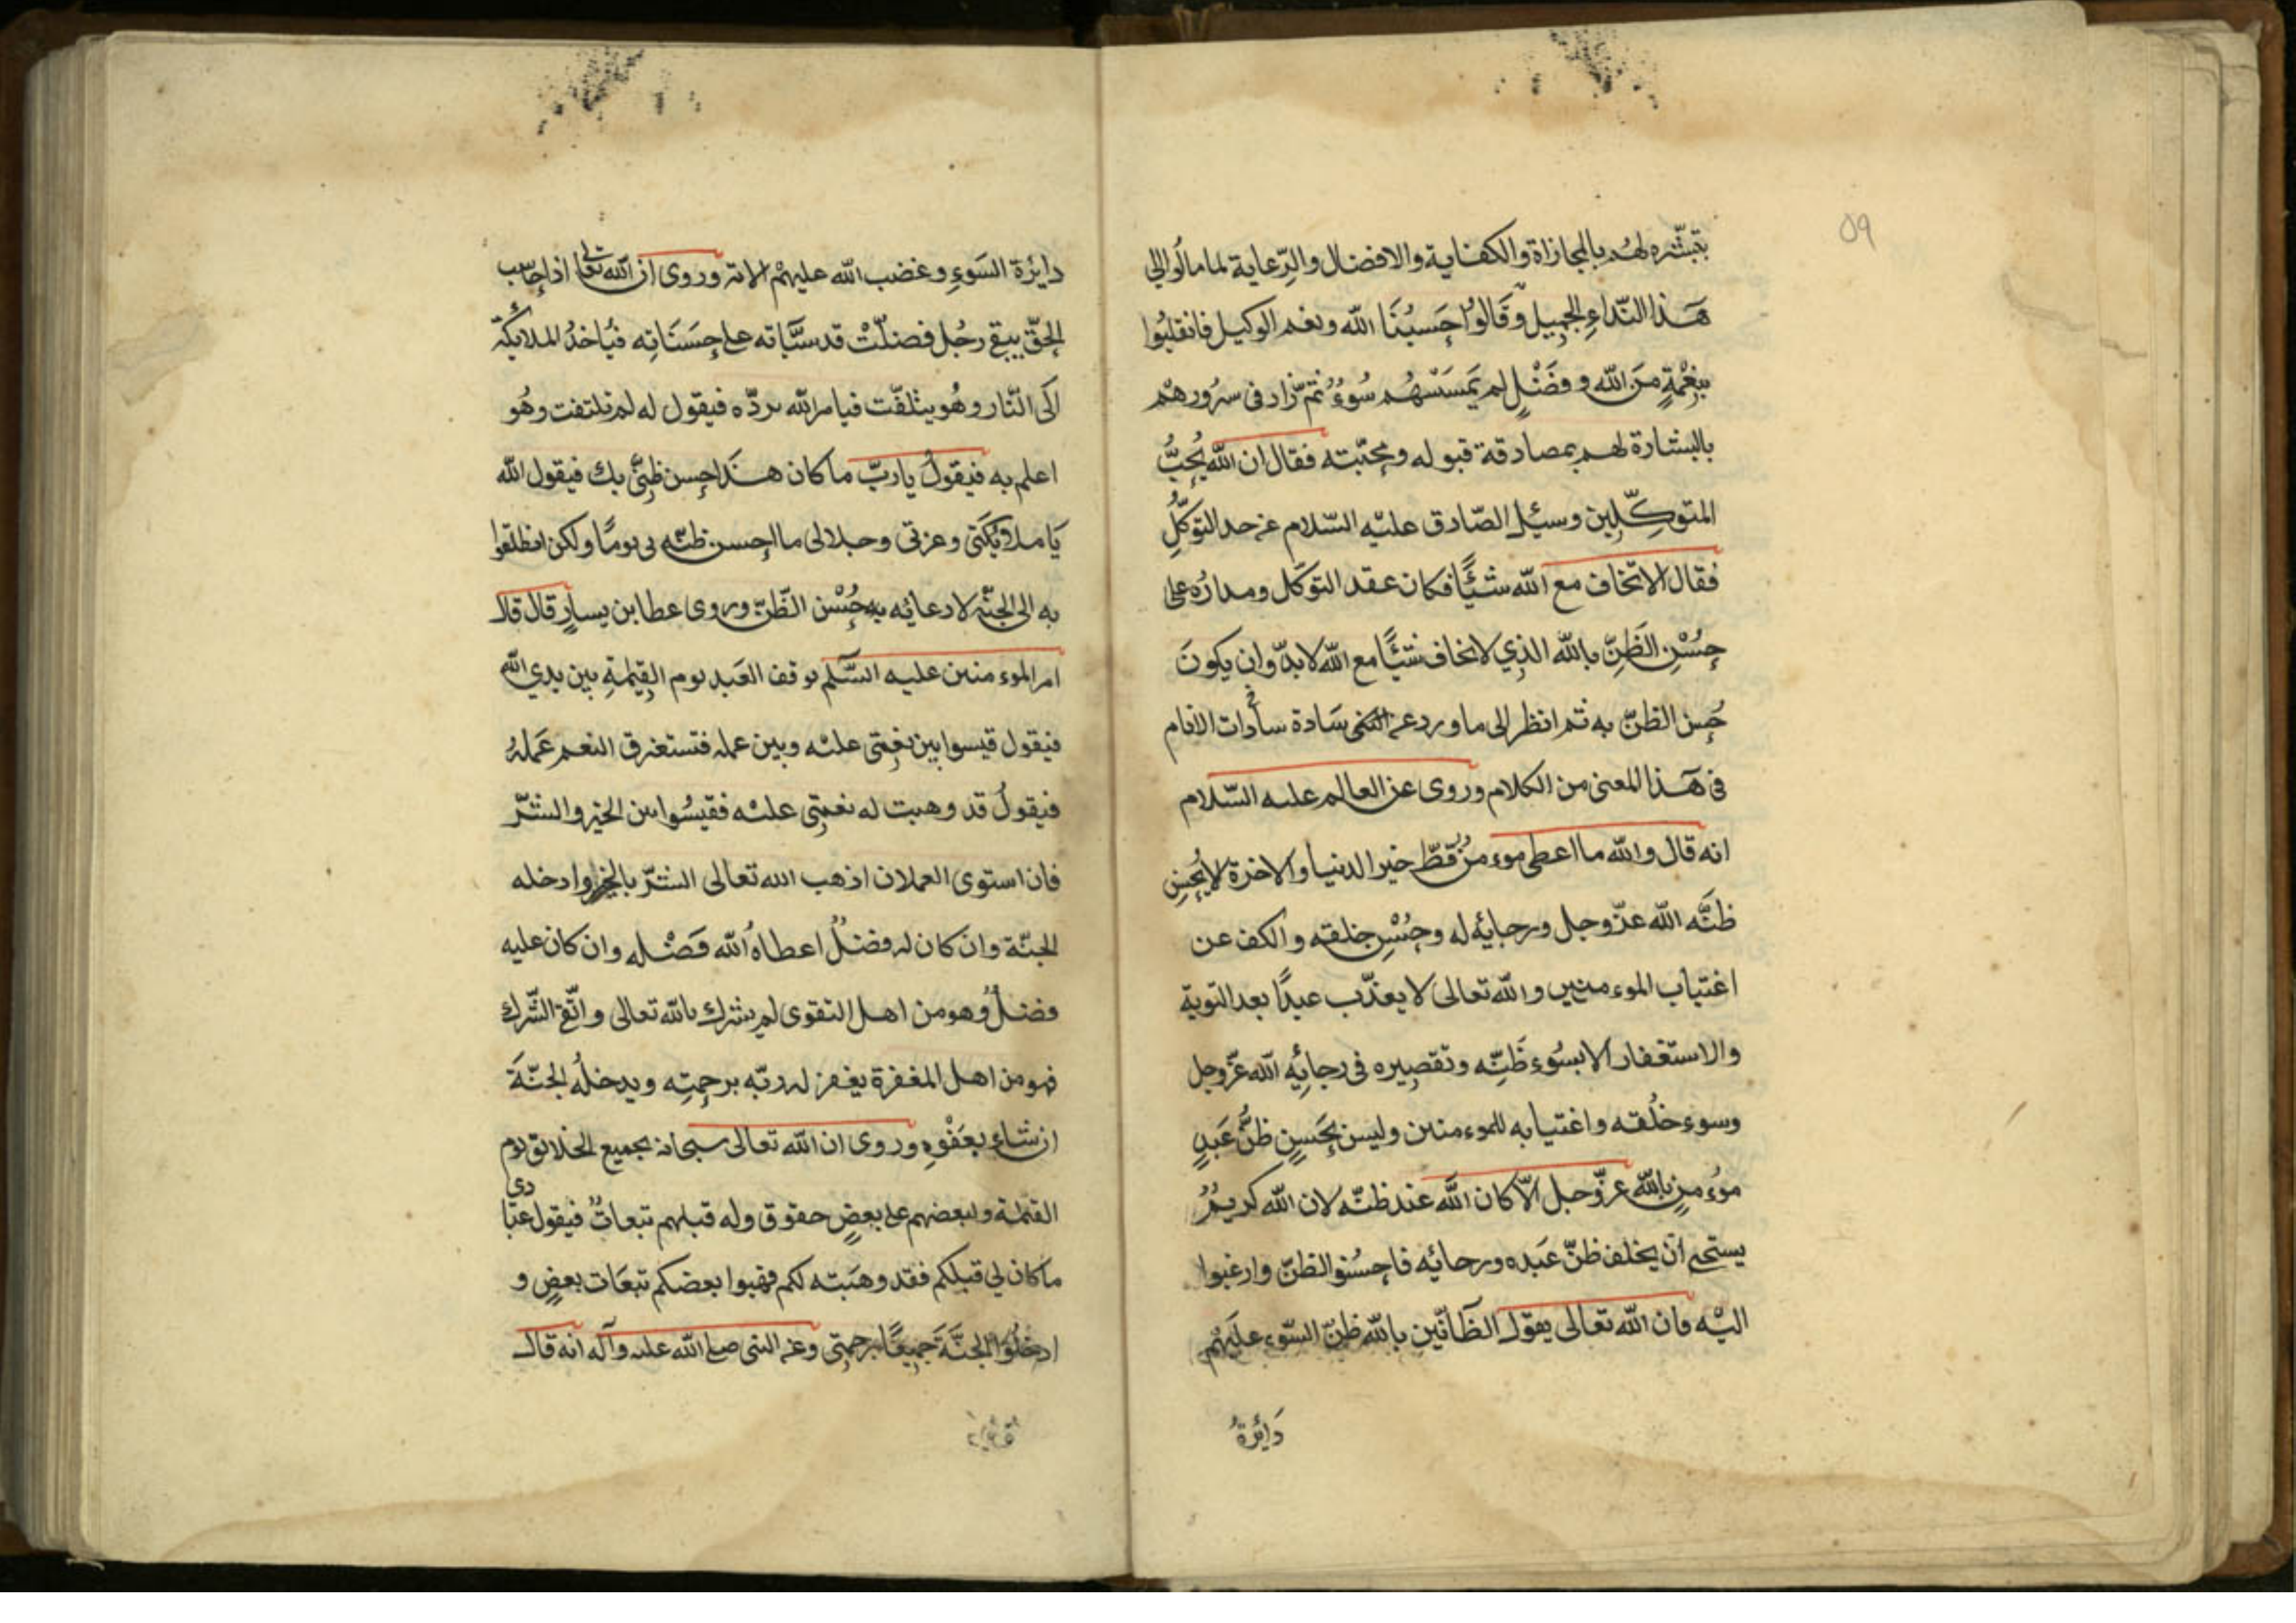 ٥٩
بتبشّره لهم بالمجازاة والكفاية والافضال والرّعاية لما مالُوا الى
هَذا النّداءِ الجميل وَقَالوُا حَسبُنَا الله ونعم الوكيل فانقلبُوا
بنِعْمةٍ مِنَ الله وفضَْلٍ لم يَمسَسْهُم سُوءٌ ثمّ زاد فى سرُورهم
بالبشارة لهم بمصادقة قبوله ومحبّته فقال ان الله يُحِبُّ
المتوكِّلِين وسئِل الصّادق عليْه السّلام عن حد التوَكّلِ
فقال الا تخاف مع الله شَيئًا فكان عقد التوكّل ومدارُه على
حُسْنِ الظَنِّ بالله الذِي لا تخاف شيئًا مع الله لا بدّ وان يكونَ
حُسن الظنّ به ثم انظر الى ما ورد عن سَادة سادات الانام
فى هَذا المعنى من الكلام وروى عن العالم عليه السّلام
انه قال والله ما اعطى موءمنٌ قطّ خير الدنيا والاخرة الا بُحسنِ
ظنّه الله عزّ وجل ورجائِه له وحُسْنِ خلقه والكف عن
اغتياب الموءمنين والله تعالى لا يعذّب عبدًا بعد التوبة
والاستغفار الا بسُوءِ ظَنِّه وتقصِيره فى رجائِه الله عزّ وجل
وسوءِ خلُقه واغتيابه للموءمنين وليس يَحسنِ ظنُّ عَبدٍ
موُءمنٍ بالله عزّ وجل الّا كان الله عند ظنّه لان الله كريمٌ
يستحى ان يخلف ظنّ عَبده ورجائه فاحسُنوا الظنّ وارغبوا
اليْه فان الله تعالى يقول الظانّين بالله ظنّ السّوءِ عليَهْم
دَائِرةُ
دايرة السَوءِ وغضب الله عليهمْ الاية وروى ان الله تعالى اذا حاسب
الخلق يبقى رجُل فضلّتْ قد سيَّاته على حسَنَاتِه فيُاخذُ الملائكة
الَى النّار وهُو يتلفّت فيامر الله بردّه فيقول له لم تلتفت وهُو
اعلم به فيقولُ يا ربّ ما كان هذَا حسن ظِنّى بك فيقول الله
يَا ملائِكَتى وعزتى وجلالى ما احسن ظنّه بى يومًا ولكن انطلقوا
به الى الجنّة لادعائه بهِ حُسْن الظّنّ وروى عطا بن يسارٍ قال قال
امر الموءمنين عليه السَّلم يوقف العَبد يوم القِيمةِ بين يدي الله
فيقول قيسوا بين نِعَمتى عليْه وبين عمله فتستغرق النعم عَملهُ
فيقولُ قد وهبت له نعمتِى عليْه فقيسُوا بين الخير والشّرّ
فان استوى العملان اذهب الله تعالى الشّرّ بالخير وادخله
الجنّة وان كان له فضلٌ اعطاهُ الله فَضْله وان كان عليه
فضلٌ وهو من اهل التقوى لم يشرك بالله تعالى واتّقى الشّرك
فهو من اهل المغفرة يغفر له ربّه برحمتِه ويدخلُه الجنّةَ
ان شاءِ بعَفْوِه وروى ان الله تعالى سبحانه يجميع الخلائق يوم
القيمة ولبعضهم على بعضٍ حقوق وله قبلهم تبعاتٌ فيقول عبادى
ما كان لي قبلكم فقد وهَبته لكم فهبوا بعضكم تبعَات بعضٍ و
ادخلُوا الجنَّةَ جَميعًا برحمتِى وعن النبى صلى الله عليه وآله انه قال